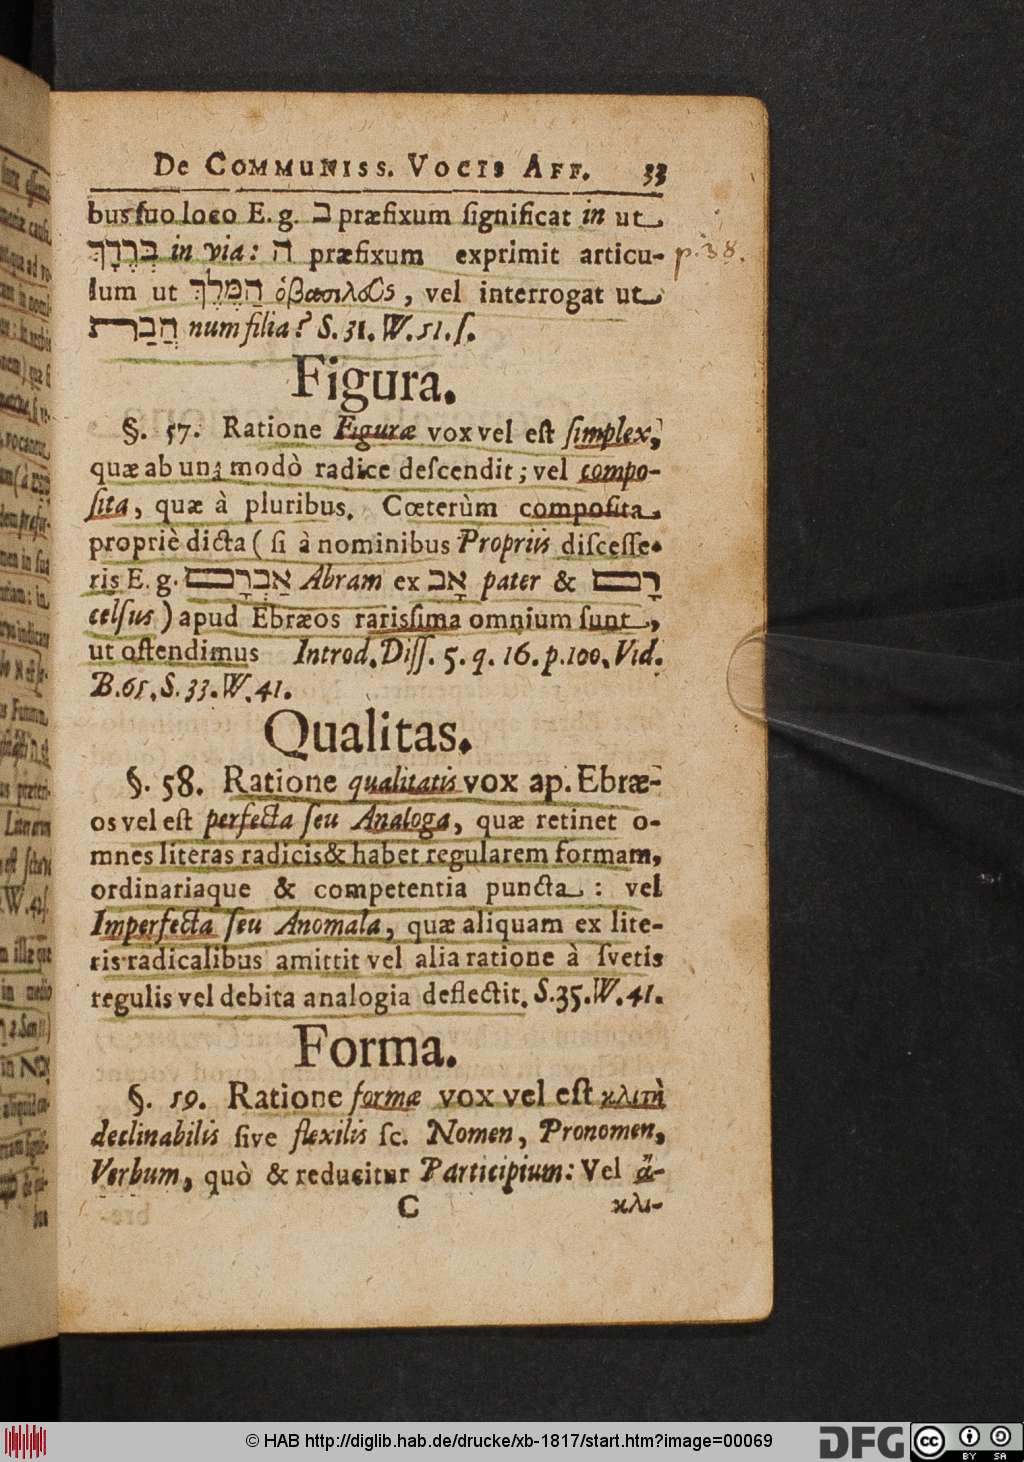 De COMMUNISS. VOCIS AFF. 33
bus ſuo loco E. g. ב præfixum ſignificat in ut
בְּדֶרֶךְ in via: ה præfixum exprimit articu-
lum ut הַמֶּלֶךְ ὁβασιλεὺς, vel interrogat ut
הֲבַרת num filia? S. 31. W. 51. ſ.
p. 38.
Figura.
§. 57. Ratione Figuræ vox vel eſt ſimplex,
quæ ab unā modò radice deſcendit; vel compo-
ſita, quæ à pluribus. Cœterùm compoſita
propriè dicta ( ſi à nominibus Propriis diſceſſe-
ris E. g. אַבְרָם Abram ex אָב pater & רָם
celſus ) apud Ebræos rarisſima omnium ſunt,
ut oſtendimus Introd. Diſſ. 5. q. 16. p. 100. Vid.
B. 65. S. 33. W. 41.
Qualitas.
§. 58. Ratione qualitatis vox ap. Ebræ-
os vel eſt perfecta ſeu Analoga, quæ retinet o-
mnes literas radicis & habet regularem formam,
ordinariaque & competentia puncta : vel
Imperfecta ſeu Anomala, quæ aliquam ex lite-
ris radicalibus amittit vel alia ratione à ſvetis
regulis vel debita analogia deflectit. S. 35. W. 41.
Forma.
§. 59. Ratione formæ vox vel eſt κλιτὴ
declinabilis ſive flexilis ſc. Nomen, Pronomen,
Verbum, quò & reducitur Participium: Vel ἄ-
C κλι-
© HAB http://diglib.hab.de/drucke/xb-1817/start.htm?image=00069
DFG
cc BY SA